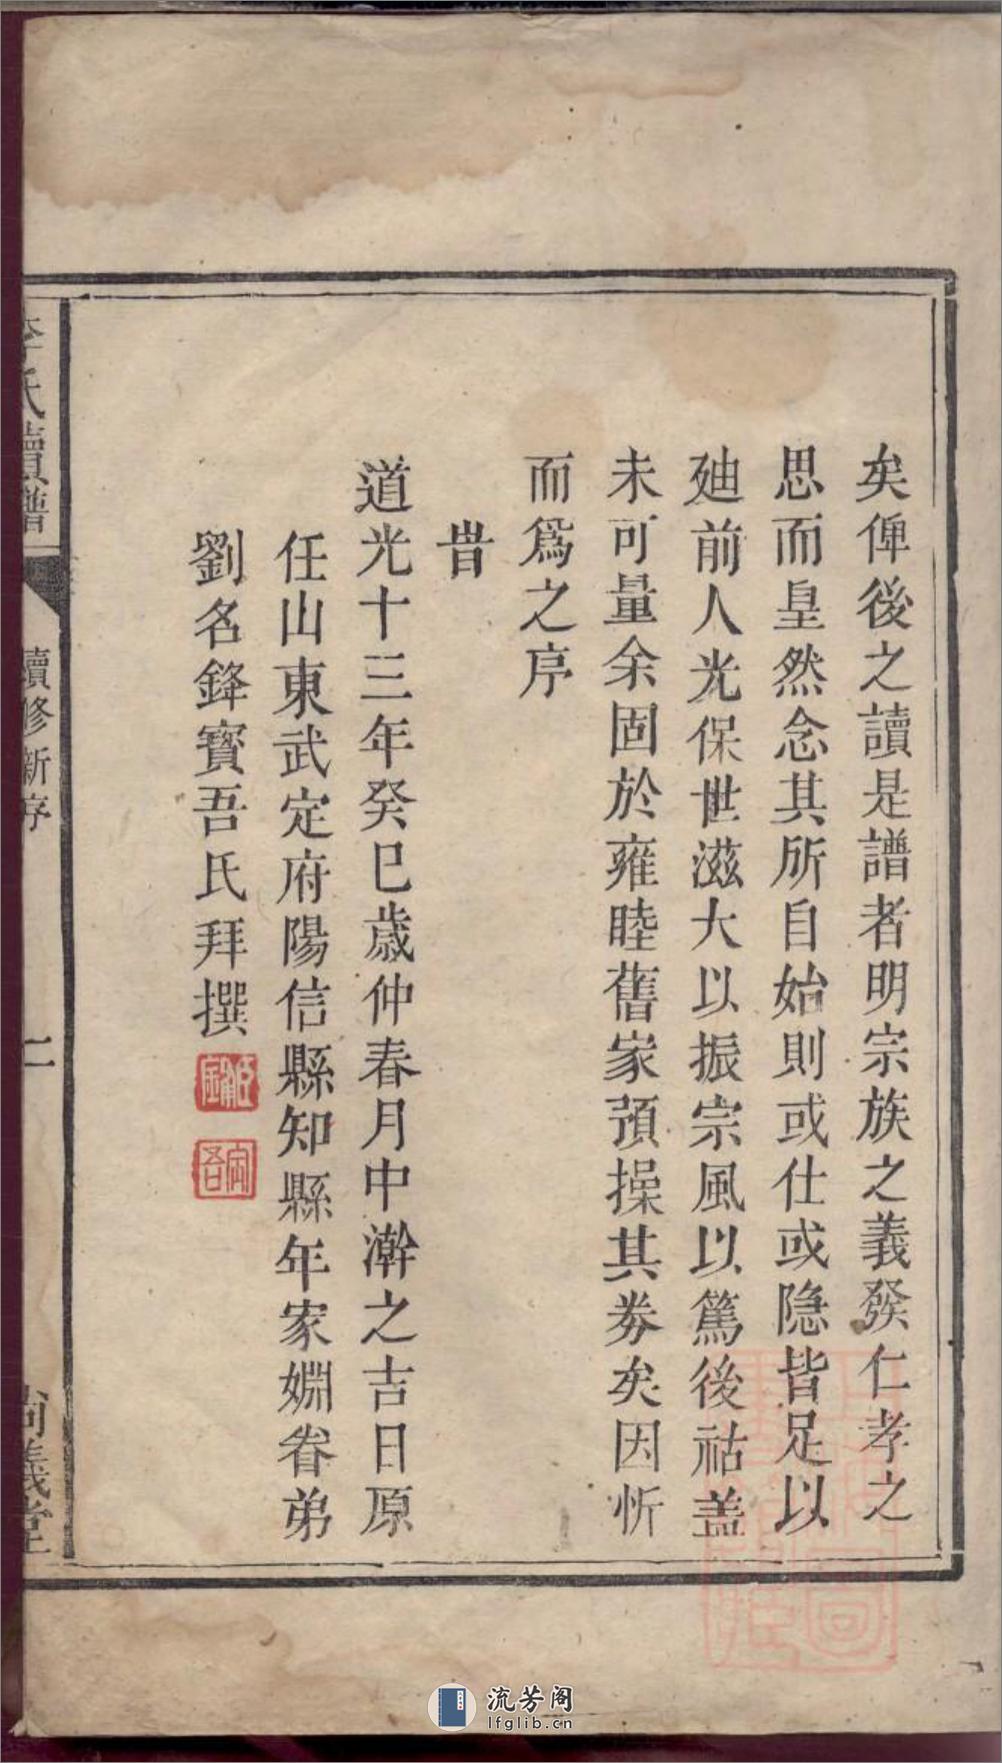 矣俾後之讀是譜者明宗族之義發仁孝之
思而皇然念其所自始則或仕或隐皆足以
廸前人光保世滋大以振宗風以篤後祜盖
未可量余固於雍睦舊家預操其券矣因忻
而爲之序
旹
道光十三年癸巳歲仲春月中澣之吉日原
任山東武定府陽信縣知縣年家婣眷弟
劉名鋒寶吾氏拜撰
李氏續譜
續修新序
二
尚義堂
流芳阁
lfglib.cn